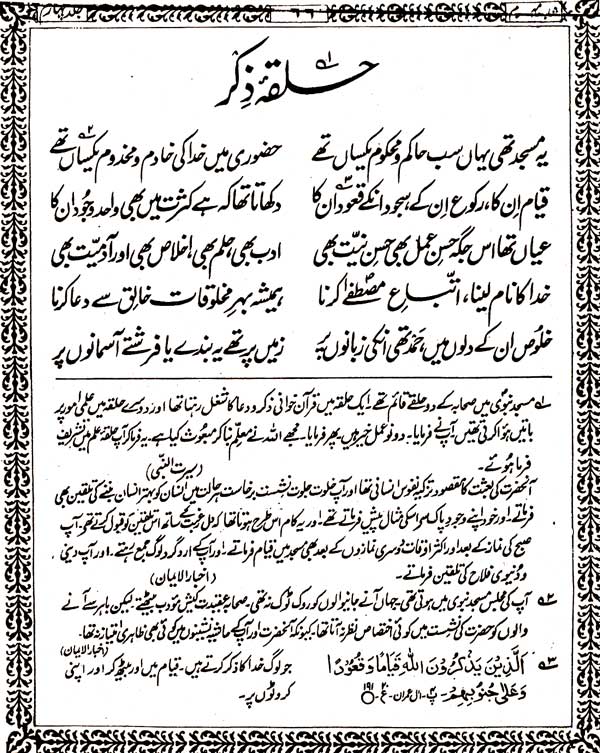 جلد چہارم
۶۶
حلقۂ ذِکر ؎۱
یہ مسجد تھی یہاں سب حاکم و محکوم یکساں تھے
حضوری میں خدا کی خادم و مخدوم یکساں تھے ؎۲
قیام اِن کا، رکوع اِن کے، سجود انکے قعود اُن کا ؎۳
دکھاتا تھا کہ ہے کثرت میں بھی واحد وجُود اِن کا
عیاں تھا اس جگہ حسنِ عمل بھی حسنِ نیت بھی
ادب بھی، علم بھی، اِخلاص بھی اور آدمیّت بھی
خدا کا نام لینا، اتّباعِ مصطفےٰؐ کرنا
ہمیشہ بہرِ مخلوقات خالِق سے دعا کرنا
خلُوص ان کے دلوں میں، حَمد تھی انکی زبانوں پر
زمیں پر تھے یہ بندے یا فرشتے آسمانوں پر
؎۱ مسجد نبویؐ میں صحابہ کے دو حلقے قائم تھے، ایک حلقہ میں قرآن خوانی ذکر و دعا کا شغل رہتا تھا اور دوسرے حلقہ میں علمی امور پر
باتیں ہوا کرتی تھیں۔ آپ نے فرمایا۔ دونو عمل خیر ہیں پھر فرمایا۔ مجھے اللہ نے معلّم بنا کر مبعوث کیا ہے۔ یہ فرما کر آپ حلقہ علم میں تشریف
فرما ہوئے۔ (سیرت النبیؐ)
آنحضرت کی بعثت کا مقصود تزکیہ نفوس انسانی تھا اور آپ خلوت جلوت نشست برخاست ہر حالت میں انسان کو بہتر انسان بننے کی تلقین بھی
فرماتے۔ اور خود اپنے وجود پاک سے اس کی مثال پیش فرماتے تھے۔ اور یہ کام اس طرح ہوتا تھا کہ دل رغبت کے ساتھ اس تلقین کو قبول کرتے تھے۔ آپ
صبح کی نماز کے بعد اور اکثر اوقات دوسری نمازوں کے بعد بھی مسجد میں قیام فرماتے۔ اور آپ کے اردگرد لوگ جمع رہتے۔ اور آپ دینی
و دنیوی فلاح کی تلقین فرماتے۔ (اخبار الایمان)
؎۲ آپ کی مجلس مسجد نبوی میں ہوتی تھی۔ جہاں آنے جانیوالوں کو روک ٹوک نہ تھی۔ صحابہ عقیدت کیش مؤدب بیٹھتے۔ لیکن باہر سے آنے
والوں کو حضرت کی نشست میں کوئی اختصاص نظر نہ آتا تھا۔ کیونکہ آنحضرت اور آپ کے حاشیہ نشینوں میں کوئی بھی ظاہری امتیاز نہ تھا۔
(اخبار الایمان)
؎۳ اَلَّذِیْنَ یَذْکُرُوْنَ اللّٰهَ قِیَامًا وَّ قُعُوْدًا
وَّعَلٰی جُنُوْبِهِمْ۔ پ۴۔ ال عمران۔ ع۔ ۱۹۱
جو لوگ خدا کا ذکر کرتے ہیں۔ قیام میں اور بیٹھ کر اور اپنی
کروٹوں پر۔